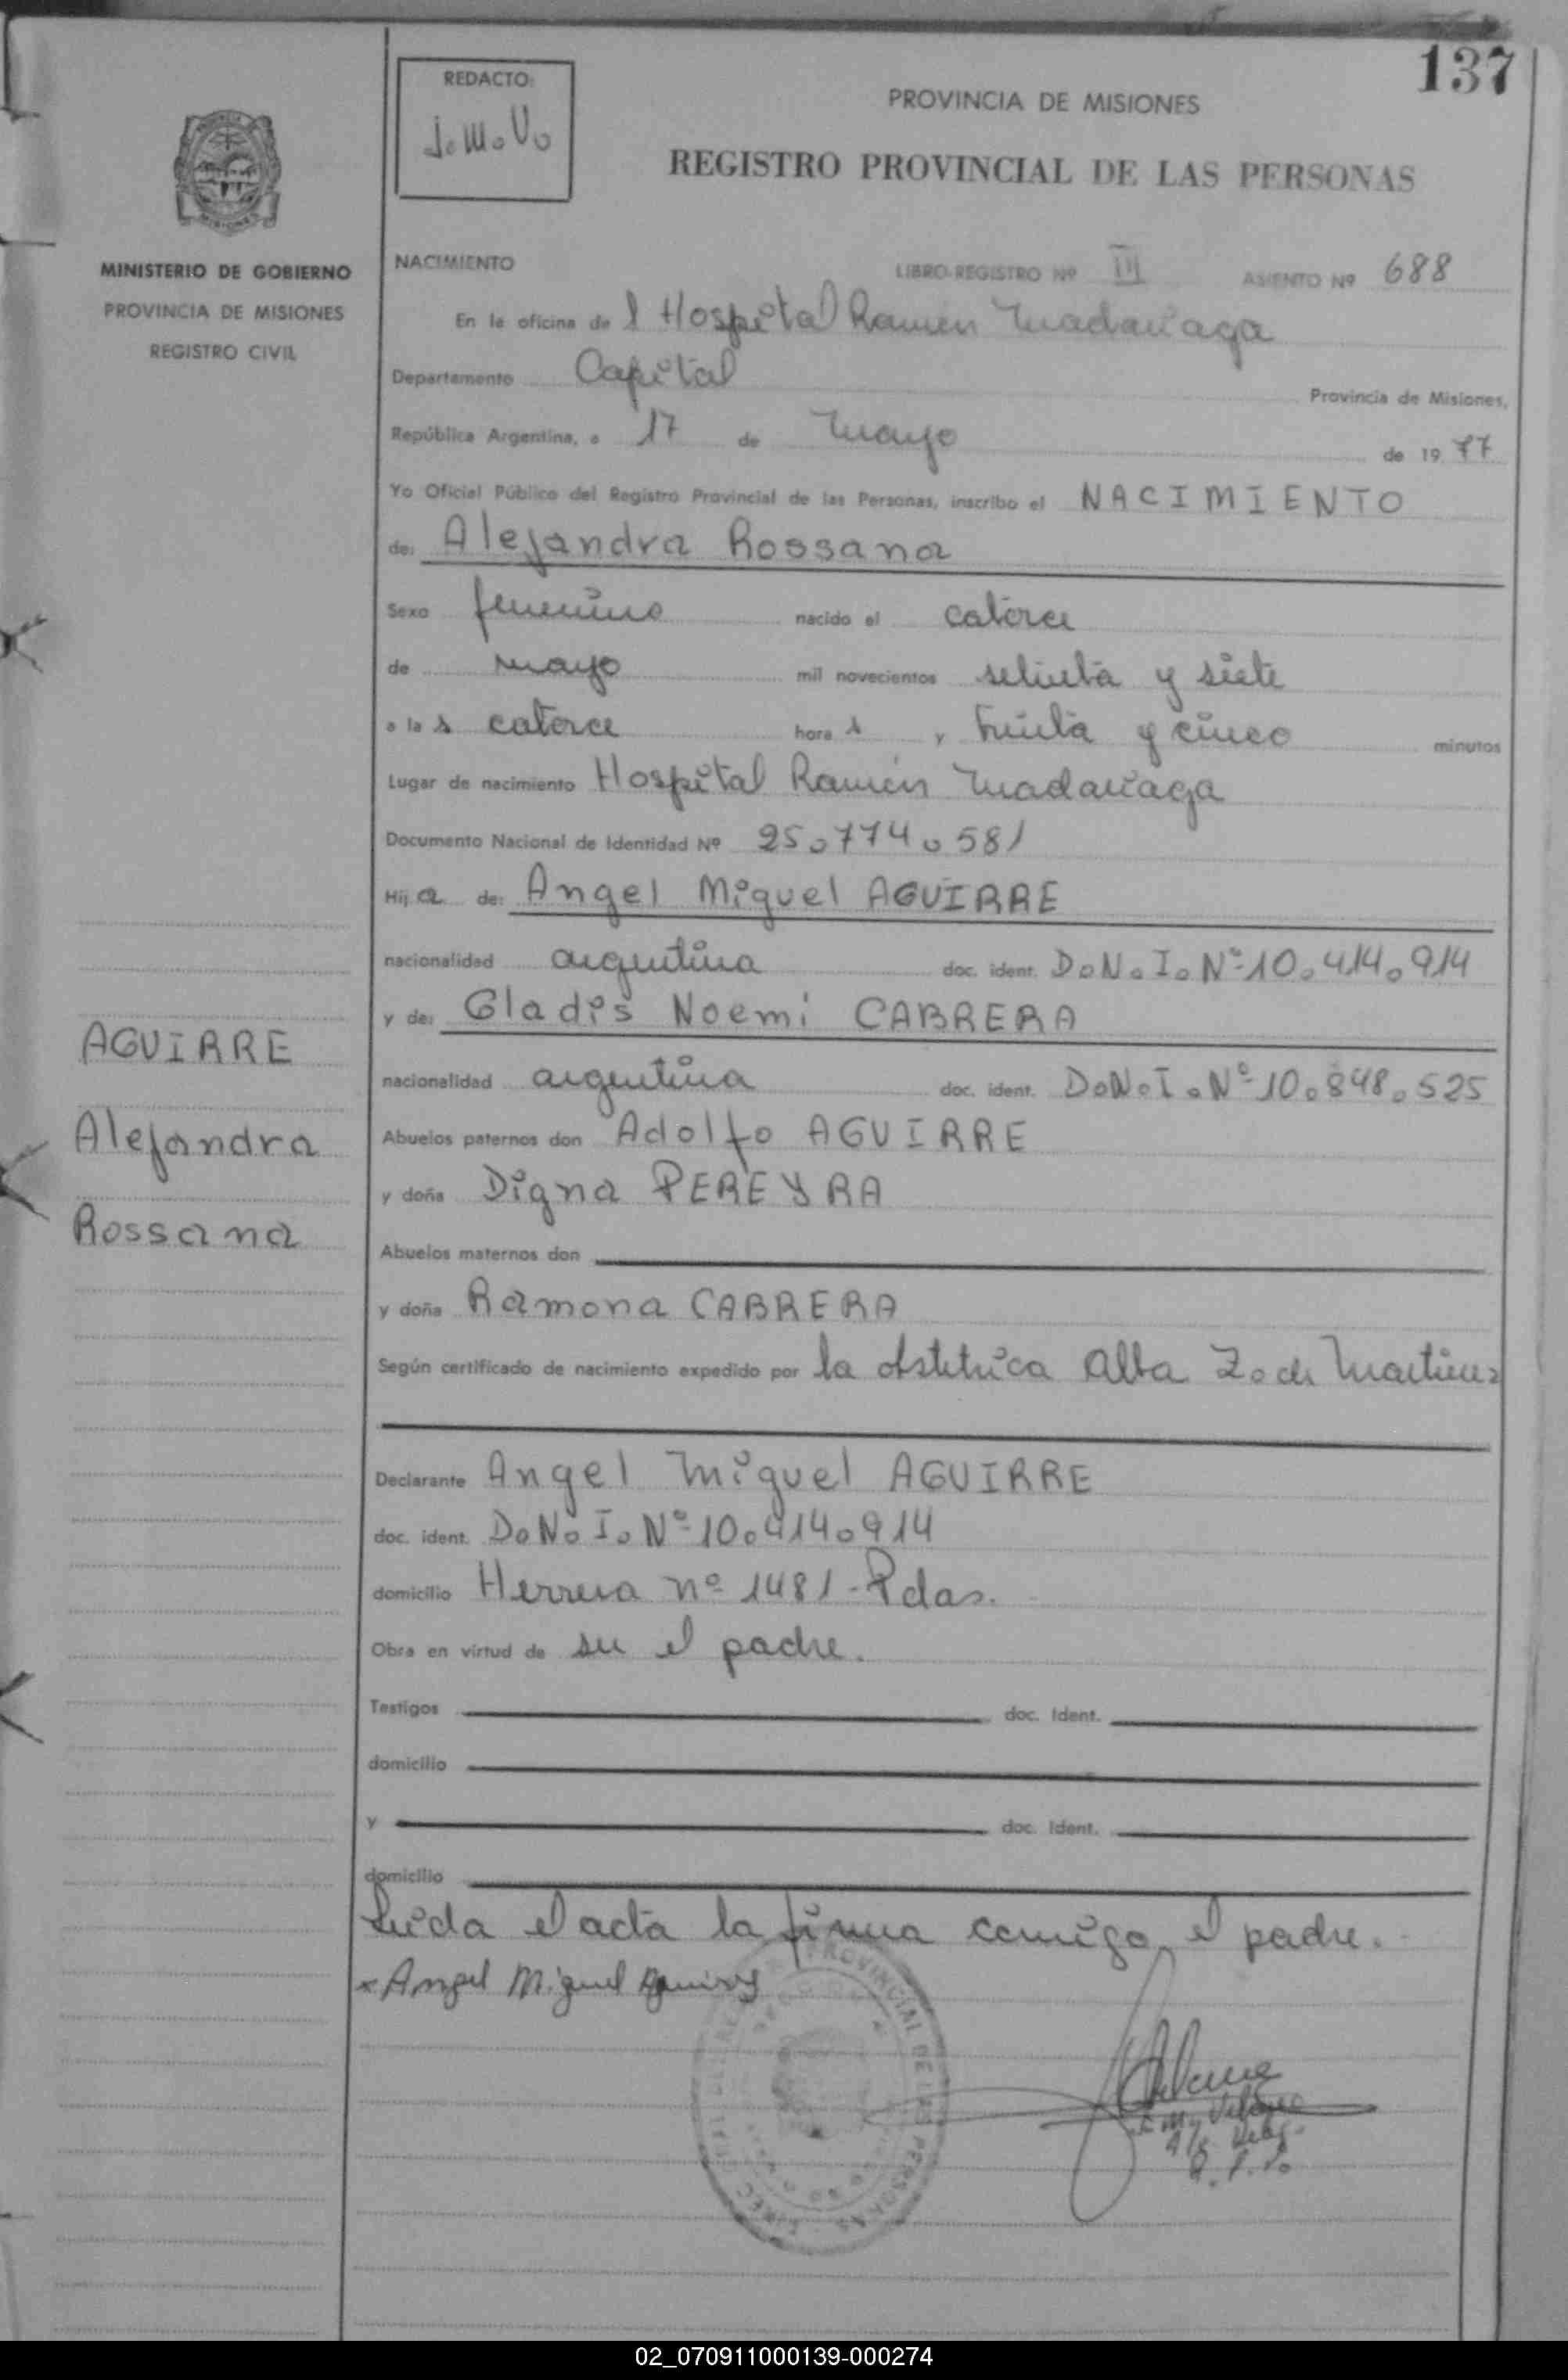 137
REDACTO:
J. M. V.
PROVINCIA DE MISIONES
REGISTRO PROVINCIAL DE LAS PERSONAS
MISIONES
MINISTERIO DE GOBIERNO
PROVINCIA DE MISIONES
REGISTRO CIVIL
NACIMIENTO LIBRO-REGISTRO Nº III ASIENTO Nº 688
En la oficina de l Hospital Ramón Madariaga
Departamento Capital
Provincia de Misiones,
República Argentina, a 17 de mayo de 19 77
Yo Oficial Público del Registro Provincial de las Personas, inscribo el NACIMIENTO
de: Alejandra Rossana
Sexo femenino nacido el catorce
de mayo mil novecientos setenta y siete
a la s catorce hora s y treinta y cinco minutos
Lugar de nacimiento Hospital Ramón Madariaga
Documento Nacional de Identidad Nº 25.774.581
Hij a de: Angel Miguel AGUIRRE
nacionalidad argentina doc. ident. D.N.I. Nº 10.414.914
y de: Gladis Noemi CABRERA
nacionalidad argentina doc. ident. D.N.I. Nº 10.848.525
Abuelos paternos don Adolfo AGUIRRE
y doña Digna PEREYRA
Abuelos maternos don
y doña Ramona CABRERA
Según certificado de nacimiento expedido por la obstetrica Alba Z. de Martinez
Declarante Angel Miguel AGUIRRE
doc. ident. D.N.I. Nº 10.414.914
domicilio Herrera nº 1481 - Pdas.
Obra en virtud de ser el padre.
Testigos doc. Ident.
domicilio
y doc. Ident.
domicilio
Leida el acta la firma conmigo, el padre.
x Angel Miguel Aguirre
PROVINCIAL DE LAS PERSONAS
AGUIRRE
Alejandra
Rossana
02_070911000139-000274